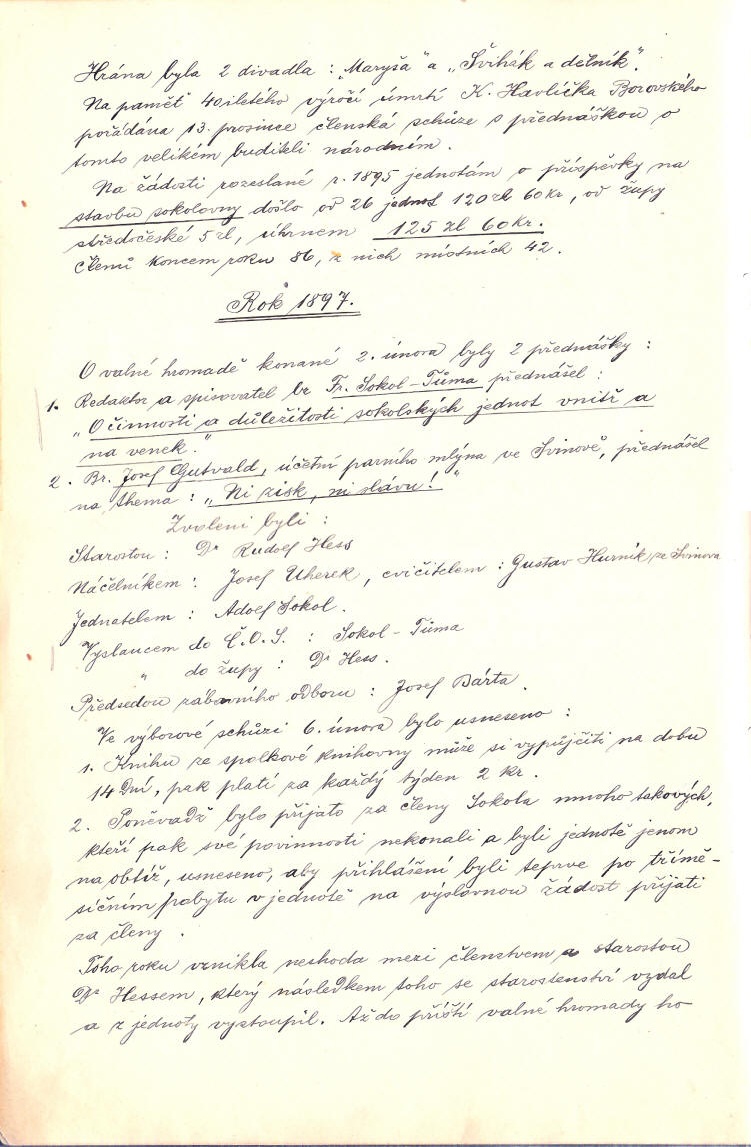 Hrána byla 2 divadla : „Maryša" a „Švihák a dětník".
Na pamět 40iletého výročí úmrtí K. Havlíčka Borovského
pořádána 13. prosince členská schůze s přednáškou o
tomto velikém buditeli národním.
Na žádosti rozeslané r. 1895 jednotám o příspěvky na
stavbu sokolovny došlo od 26 jednot 120 zl 60 kr, od župy
středočeské 5 zl, úhrnem 125 zl 60 kr.
Členů koncem roku 86, z nich místních 42.
Rok 1897.
O valné hromadě konané 2. února byly 2 přednášky :
1. Redaktor a spisovatel br Fr. Sokol-Tůma přednášel :
„O činnosti a důležitosti sokolských jednot vnitř a
na venek."
2. Br. Josef Gutvald, účetní parního mlýna ve Svinově, přednášel
na thema : „Ni zisk, ni slávu!"
Zvoleni byli :
Starostou : Dr Rudolf Hess
Náčelníkem : Josef Uherek, cvičitelem : Gustav Hurník, ze Svinova
Jednatelem : Adolf Sokol.
Vyslancem do Č.O.S. : Sokol-Tůma
„ do župy : Dr Hess.
Předsedou zábavního odboru : Josef Bárta.
Ve výborové schůzi 6. února bylo usneseno :
1. Knihu ze spolkové knihovny může si vypůjčiti na dobu
14 dní, pak platí za každý týden 2 kr.
2. Poněvadž bylo přijato za členy Sokola mnoho takových,
kteří pak své povinnosti nekonali a byli jednotě jenom
na obtíž, usneseno, aby přihlášení byli teprve po třímě-
síčním pobytu v jednotě na výslovnou žádost přijati
za členy.
Toho roku vznikla neshoda mezi členstvem a starostou
Dr Hessem, který následkem toho se starostenství vzdal
a z jednoty vystoupil. Až do příští valné hromady ho